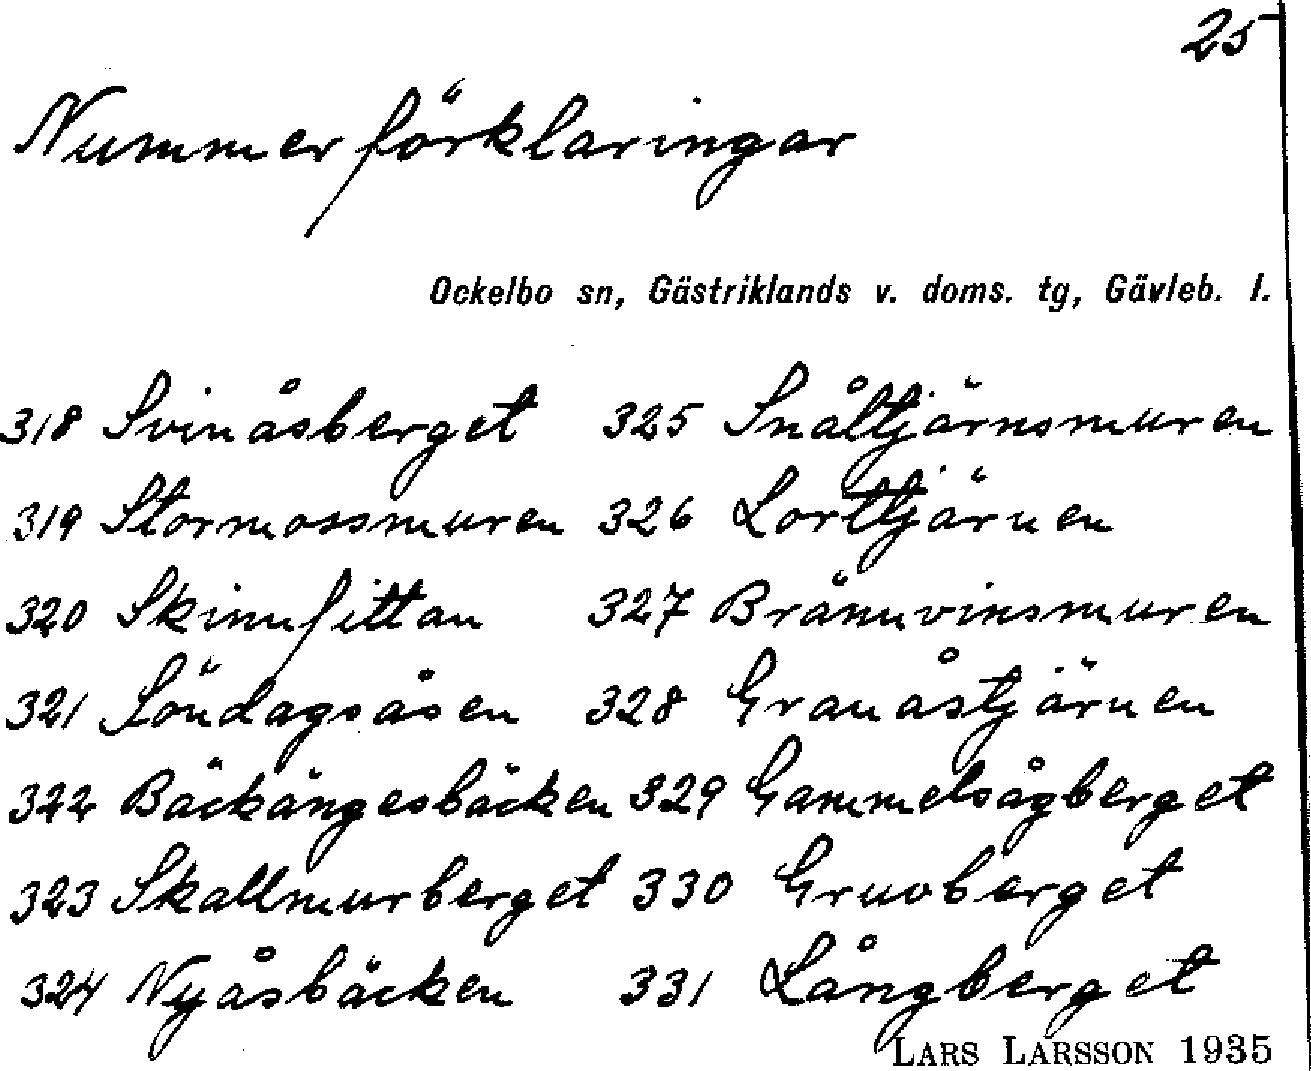 25
Nummerförklaringar
Ockelbo sn, Gästriklands v. doms. tg, Gävleb. l.
318 Svinåsberget 325 Snåltjärnsmuren
319 Stormossmuren 326 Lorttjärnen
320 Skinnfittan 327 Brännvinsmuren
321 Söndagsåsen 328 Granåstjärnen
322 Bäckängesbäcken 329 Gammelsågberget
323 Skallmurberget 330 Gruvberget
324 Nyåsbäcken 331 Långberget
LARS LARSSON 1935